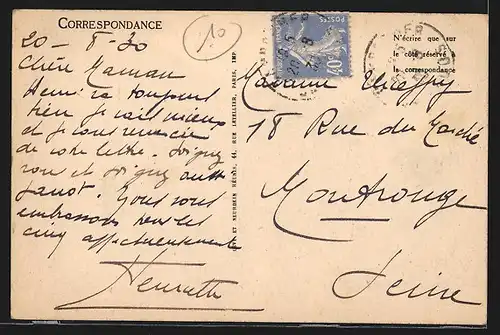 CORRESPONDANCE
10
N'écrire que sur
le côté réservé
la correspondance
20 - 8 - 30
Chère Maman
Henri va toujours
bien je vais mieux
et je vous remercie
de votre lettre. Soignez
vous et soignez aussi
Janot. Nous vous
embrassons tous les
cinq affectueusement
Henriette
Madame
18 Rue du Marché
Montrouge
Seine
40c
RUE LETELLIER, PARIS, IMP